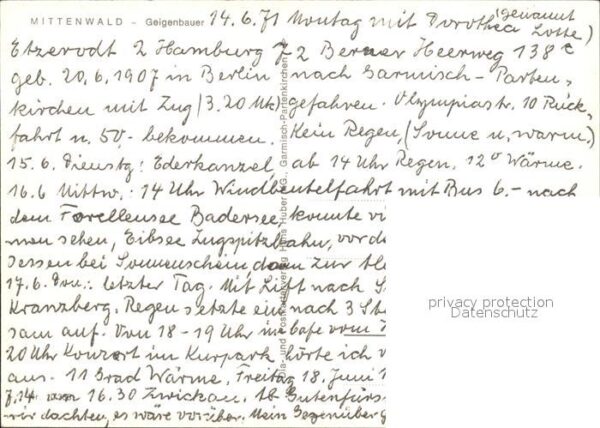 MITTENWALD – Geigenbauer
14.6.71 Montag mit Dorothea (genannt Lotte)
Etzerodt 2 Hamburg 72 Berner Heerweg 138c
geb. 20.6.1907 in Berlin nach Garmisch-Parten-
kirchen mit Zug (3.20 Uhr) gefahren. Olympiastr. 10 Rück-
fahrt u. 50,- bekommen. Kein Regen, (Sonne u. warm.)
15.6. Dienstg: Ederkanzel, ab 14 Uhr Regen. 12° Wärme.
16.6 Mittw.: 14 Uhr Windbeutelfahrt mit Bus 6.- nach
dem Forellensee Badersee, konnte vi
man sehen, Eibsee Zugspitzbahn, vor d
sessen bei Sonnenschein, dann zur
17.6. Don.: letzter Tag. Mit Lift nach
Kranzberg. Regen setzte ein nach 3 St
sam auf. Von 18-19 Uhr im Cafe vom
20 Uhr Konzert im Kurpark hörte ich
aus. 11 Grad Wärme. Freitag 18. Juni 1
7.14 16.30 Zwickau. 18 Gutenfürs
wir dachten, es wäre vorüber. Mein Gegenüber g
Dia- und Postkartenverlag Hans Huber KG. Garmisch-Partenkirchen
privacy protection
Datenschutz